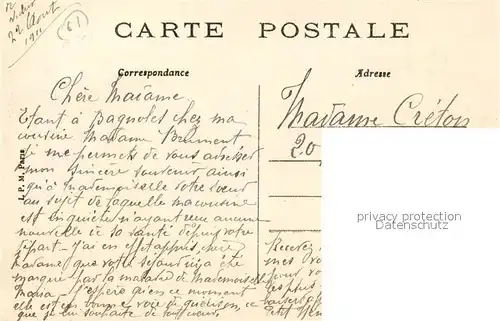 22 Août
1911
61
CARTE POSTALE
Correspondance
Adresse
Chère Madame
Étant à Bagnoles chez ma
cousine Madame Brument
je me permets de vous adresser
mon sincère souvenir ainsi
qu'à Mademoiselle votre sœur
au sujet de laquelle ma cousine
est inquiète n'ayant reçu aucune
nouvelle de sa santé depuis votre
départ - J'ai en effet appris, chère
Madame, que votre séjour ici a été
marqué par la maladie de Mademoiselle
Maria. J'espère qu'en ce moment
elle est en bonne voie de guérison, ce
que je lui souhaite de tout cœur.
J. P. M. Paris
Madame Créton
20
privacy protection
Datenschutz
Recevez,
mes
pour
les plus